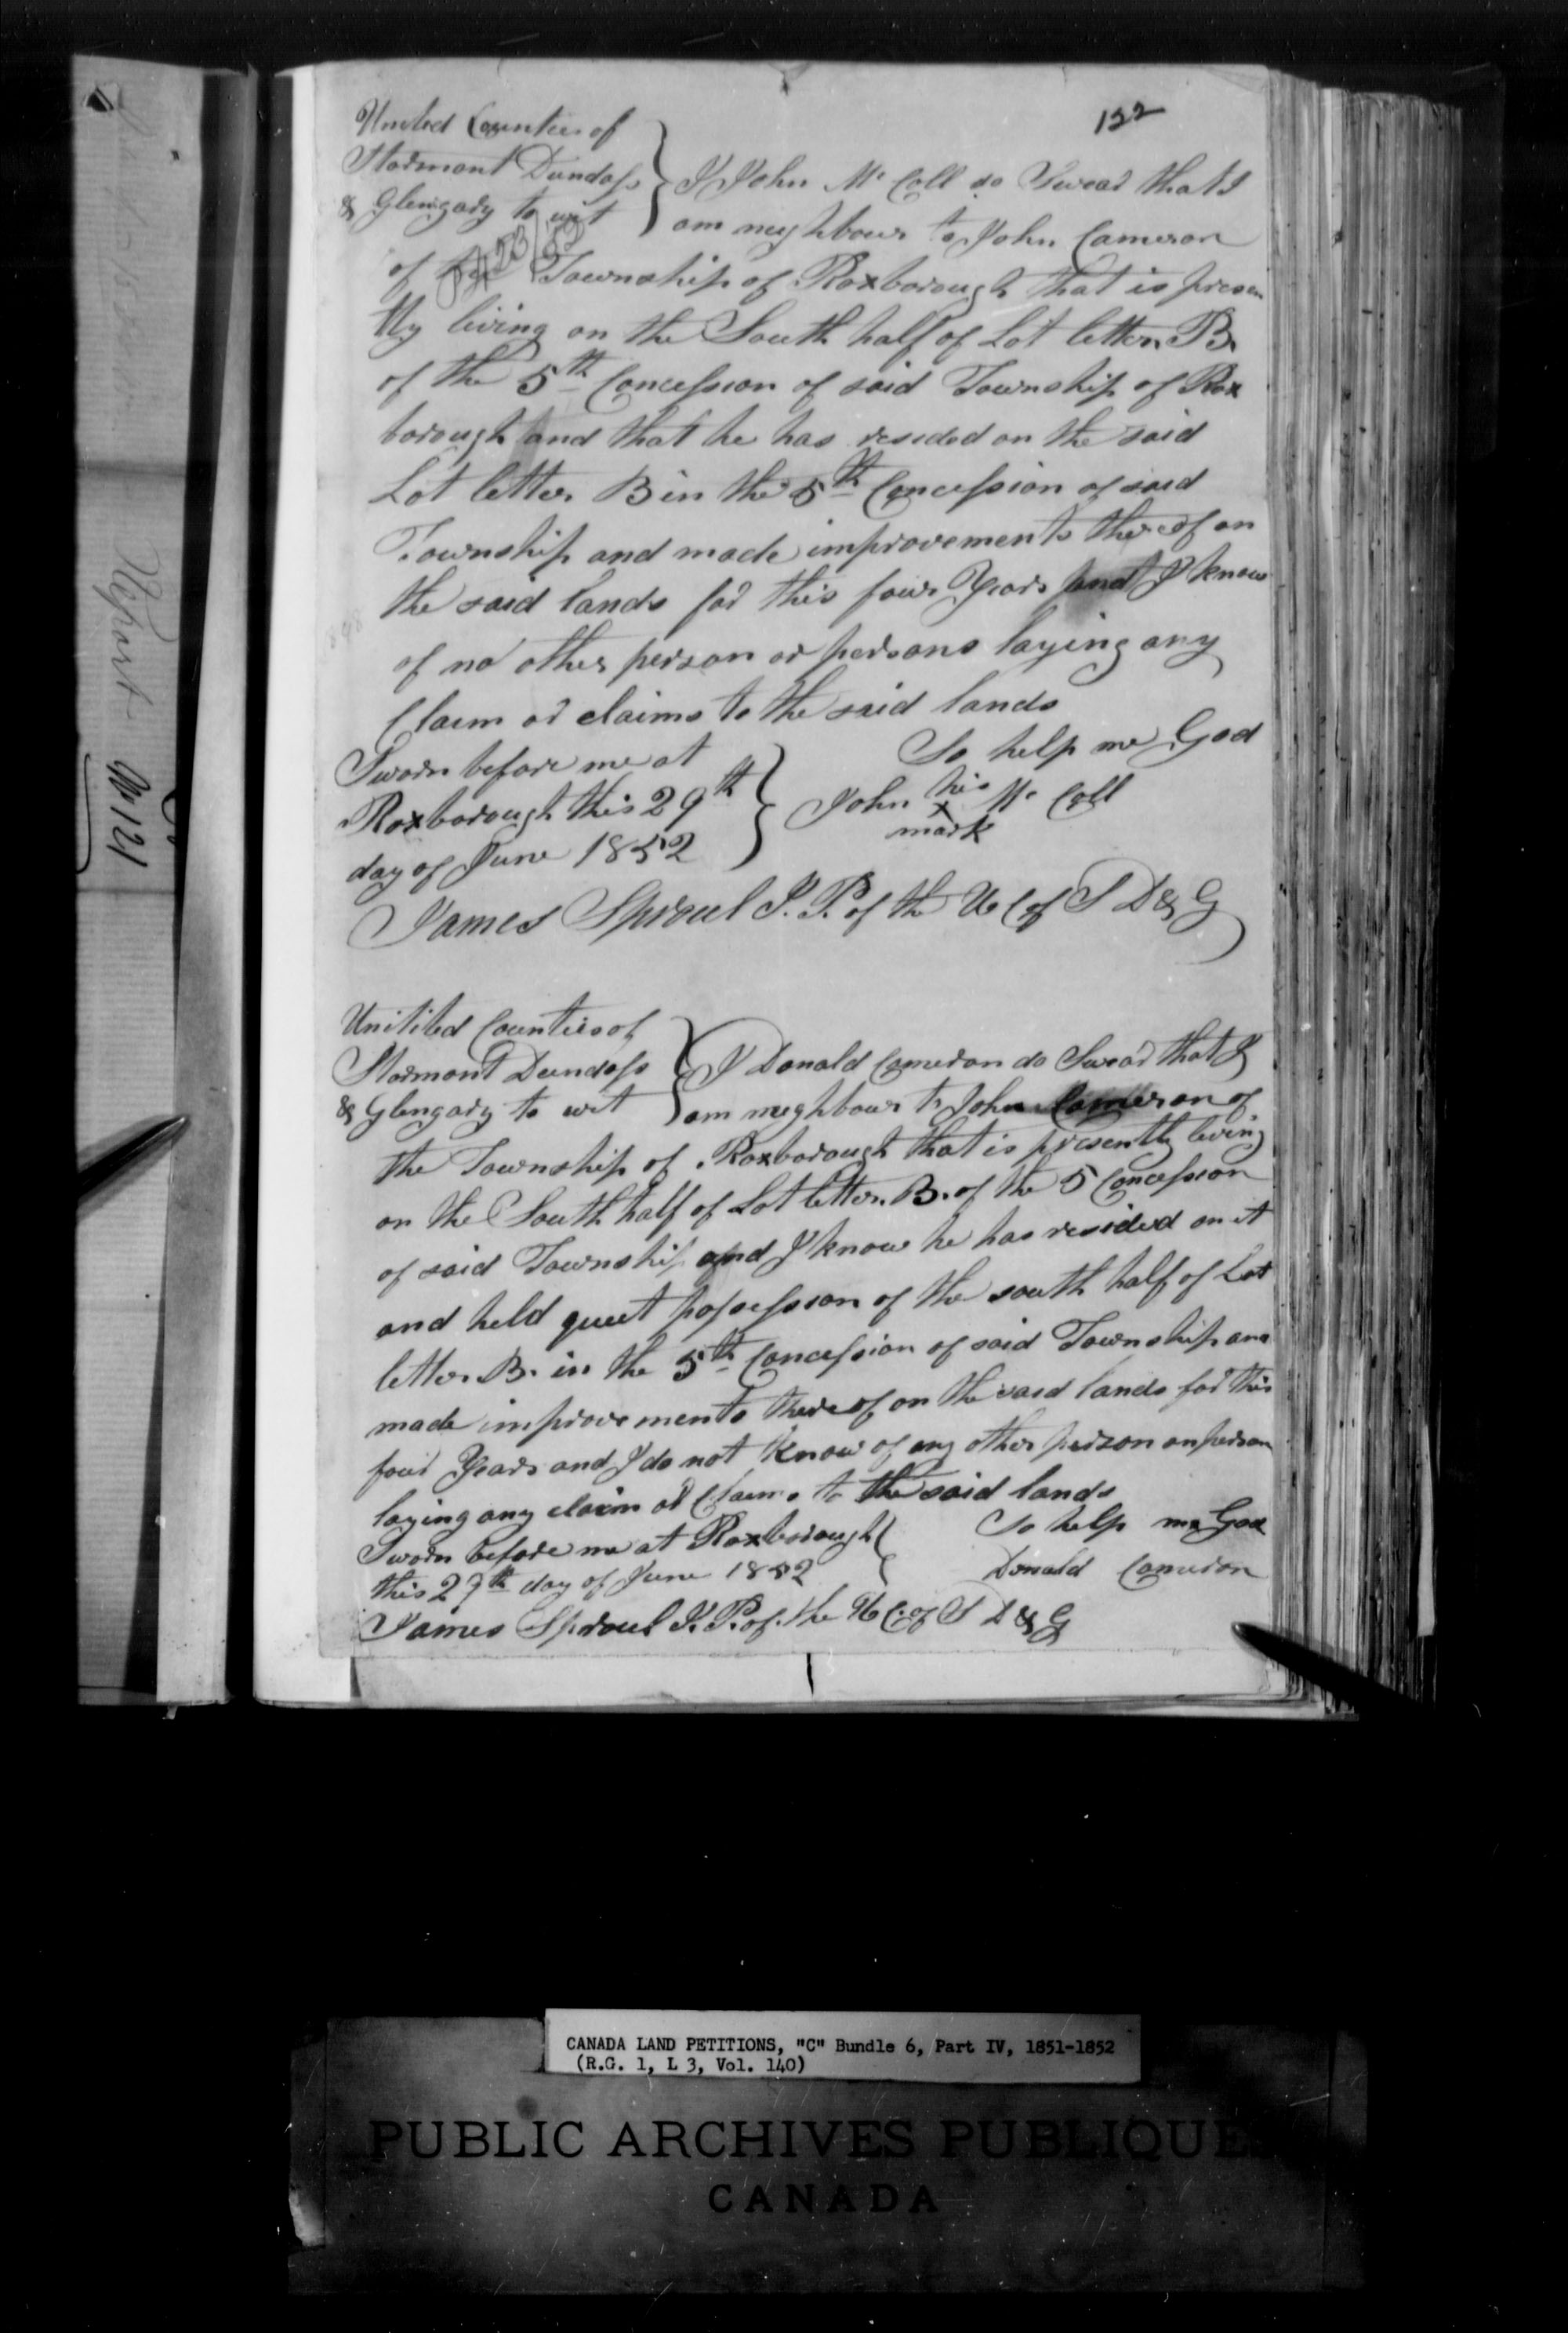 122
United Counties of
Stormont Dundass
& Glengary to wit
I John Mc Coll do Swear that I
am neighbour to John Cameron
of the Township of Roxborough that is presen
tly living on the South half of Lot letter B
of the 5th Concession of said Township of Rox
borough and that he has resided on the said
Lot letter B in the 5th Concession of said
Township and made improvements thereof on
the said lands for this four Years and I know
of no other person or persons laying any
Claim or claims to the said lands
So help me God
Sworn before me at
Roxborough this 29th
day of June 1852
John his x Mc Coll
mark
James Sproul J. P. of the U C of S D & G
Unitited Counties of
Stormont Dundass
& Glengary to wit
I Donald Cameron do Swear that I
am neghbour to John Cameron of
the Township of Roxborough that is presently living
on the South half of Lot letter B. of the 5 Concession
of said Township and I know he has resided on it
and held quiet possession of the south half of Lot
letter B. in the 5th Concession of said Township and
made improvements thereof on the said lands for this
four Years and I do not know of any other person or person
laying any claim or Claims to the said lands
So help me God
Sworn before me at Roxborough
this 29th day of June 1852
Donald Cameron
James Sproul J. P. of the U C. of S D & G
Report No 121
CANADA LAND PETITIONS, "C" Bundle 6, Part IV, 1851-1852
(R.G. 1, L 3, Vol. 140)
PUBLIC ARCHIVES PUBLIQUE
CANADA